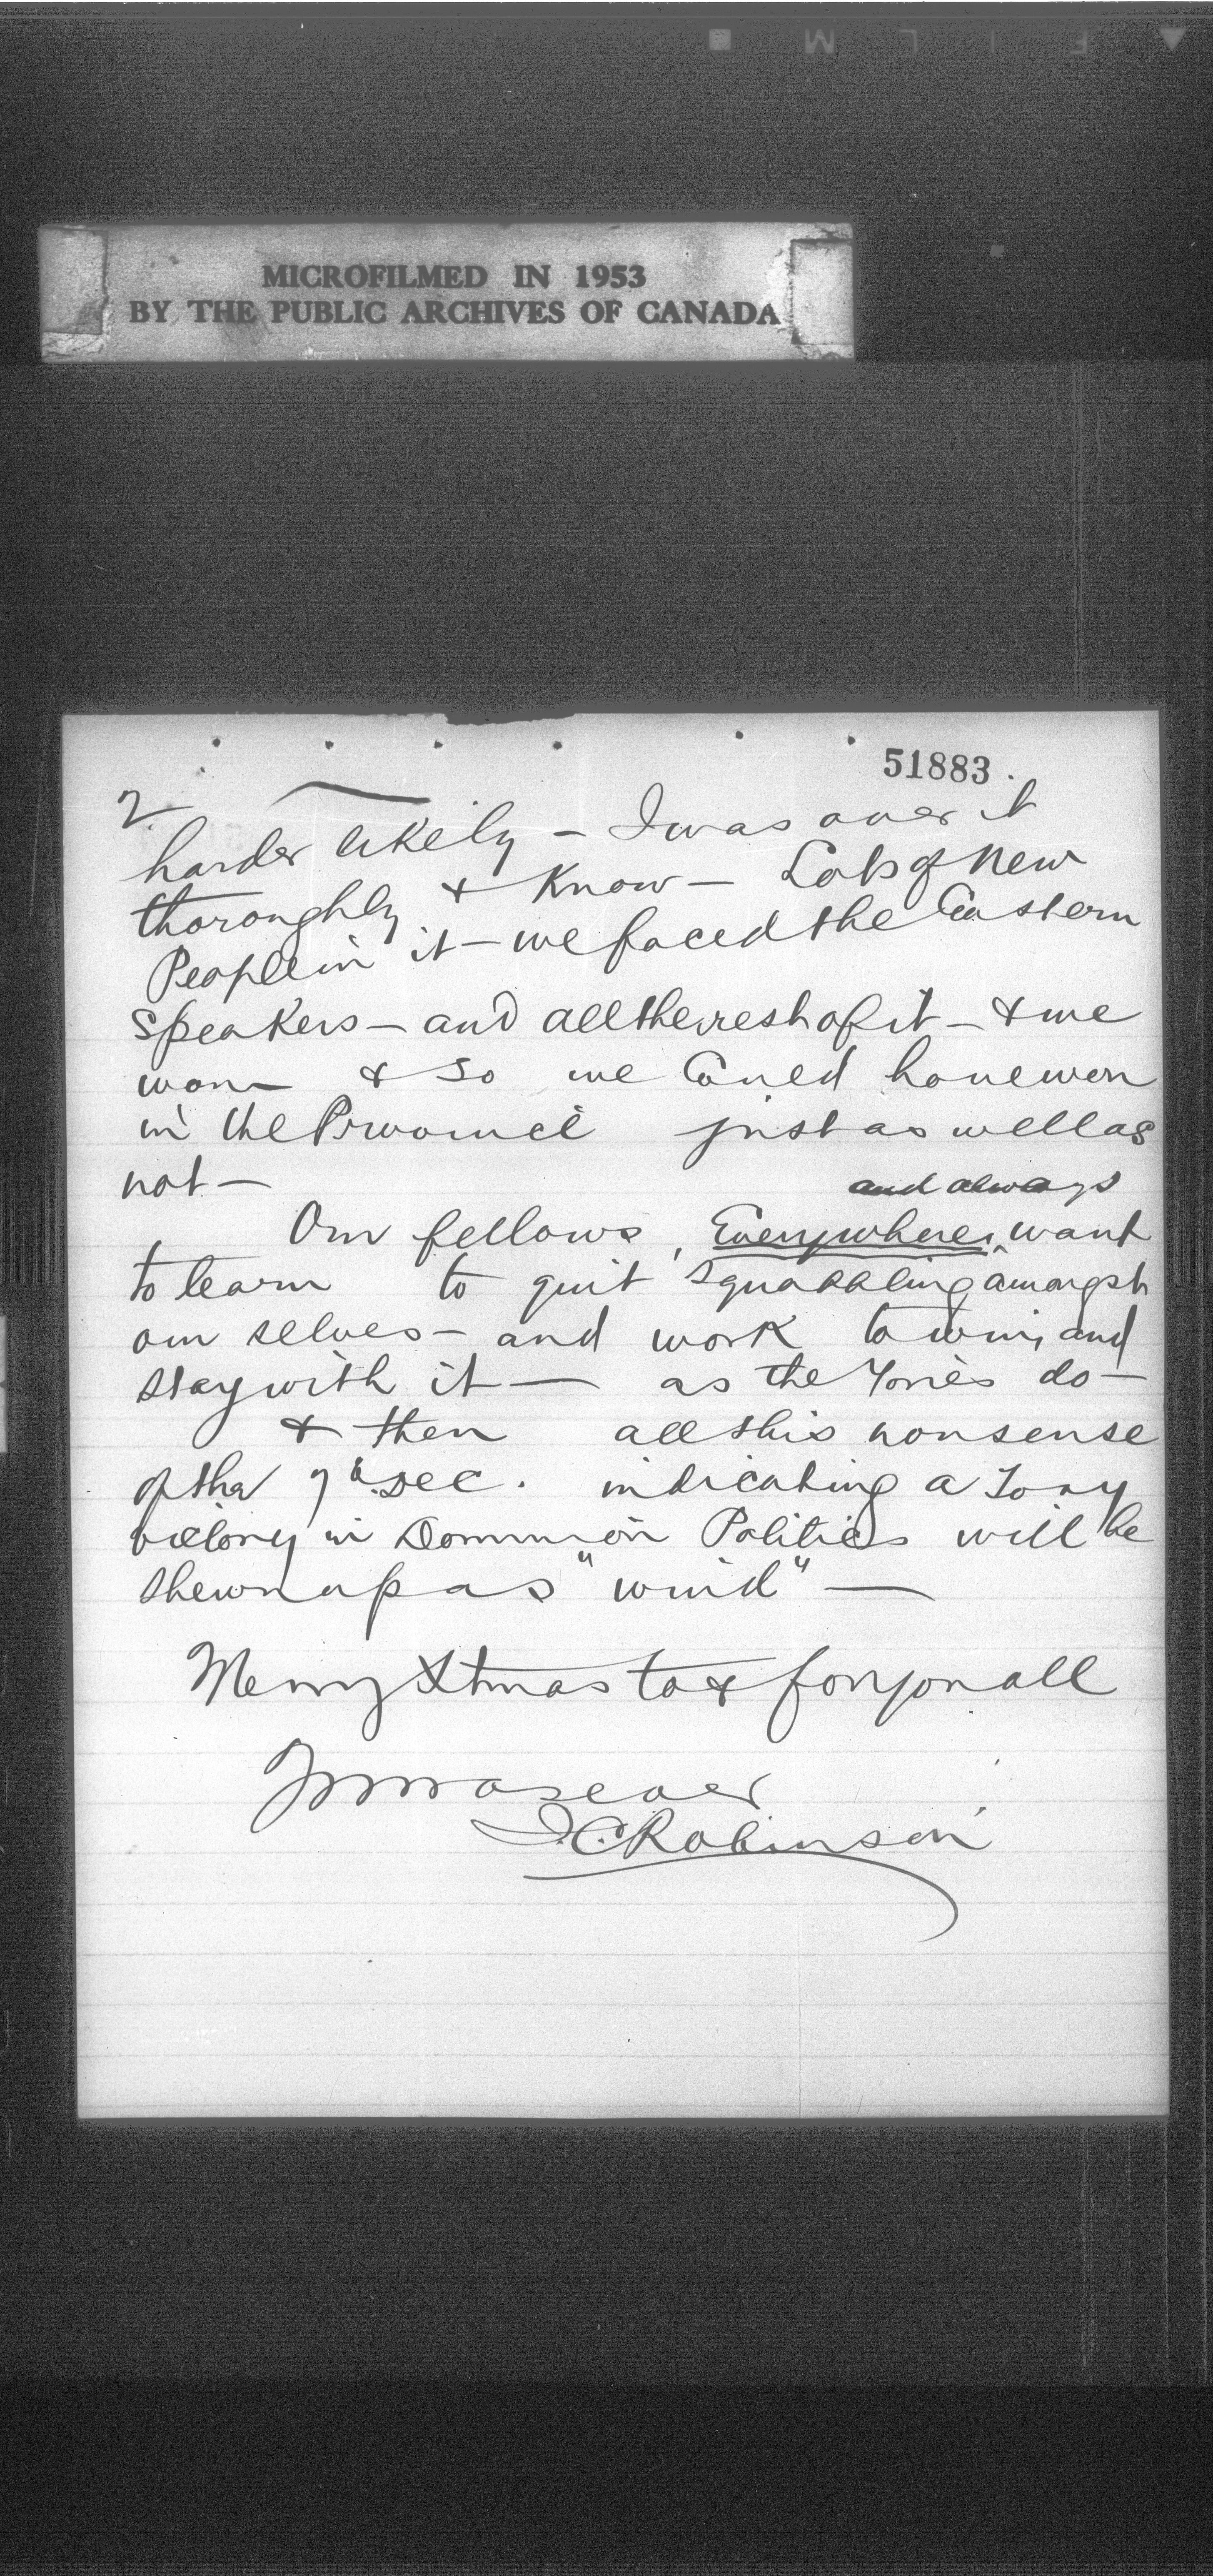 FILM
MICROFILMED IN 1953
BY THE PUBLIC ARCHIVES OF CANADA
51883.
2
harder likely – I was over it
thoroughly & Know – Lots of New
People in it – we faced the Eastern
Speakers – and all the rest of it – & we
won & So we Could have won
in the Province just as well as
not –
and always
Our fellows, Everywhere, want
to learn to quit Squabbling amongst
our selves – and work to win, and
stay with it – as the Tories do –
& then all this nonsense
of the 7th Dec. indicating a Tory
victory in Dominion Politics will be
shewn up as "wind" –
Merry Xmas to & for you all
Yours as ever
J.C. Robinson